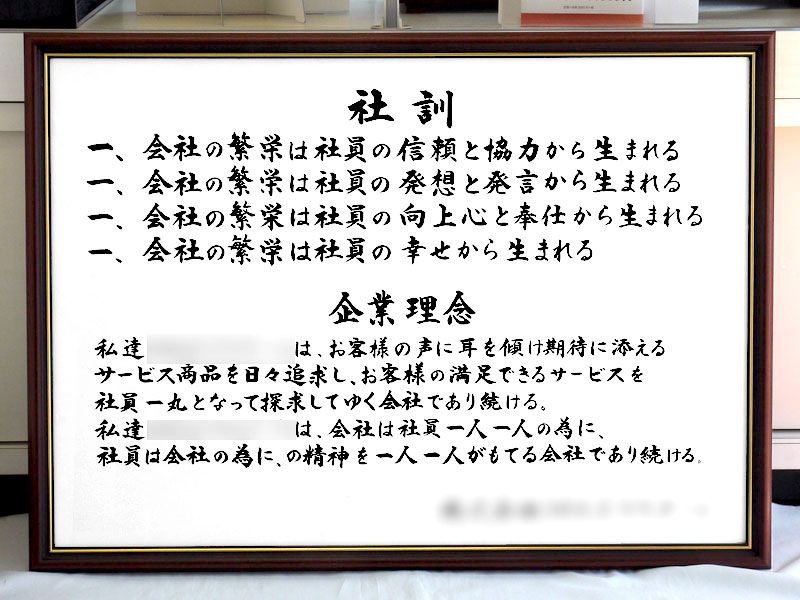 社訓
一、会社の繁栄は社員の信頼と協力から生まれる
一、会社の繁栄は社員の発想と発言から生まれる
一、会社の繁栄は社員の向上心と奉仕から生まれる
一、会社の繁栄は社員の幸せから生まれる
企業理念
私達 は、お客様の声に耳を傾け期待に添える
サービス商品を日々追求し、お客様の満足できるサービスを
社員一丸となって探求してゆく会社であり続ける。
私達 は、会社は社員一人一人の為に、
社員は会社の為に、の精神を一人一人がもてる会社であり続ける。